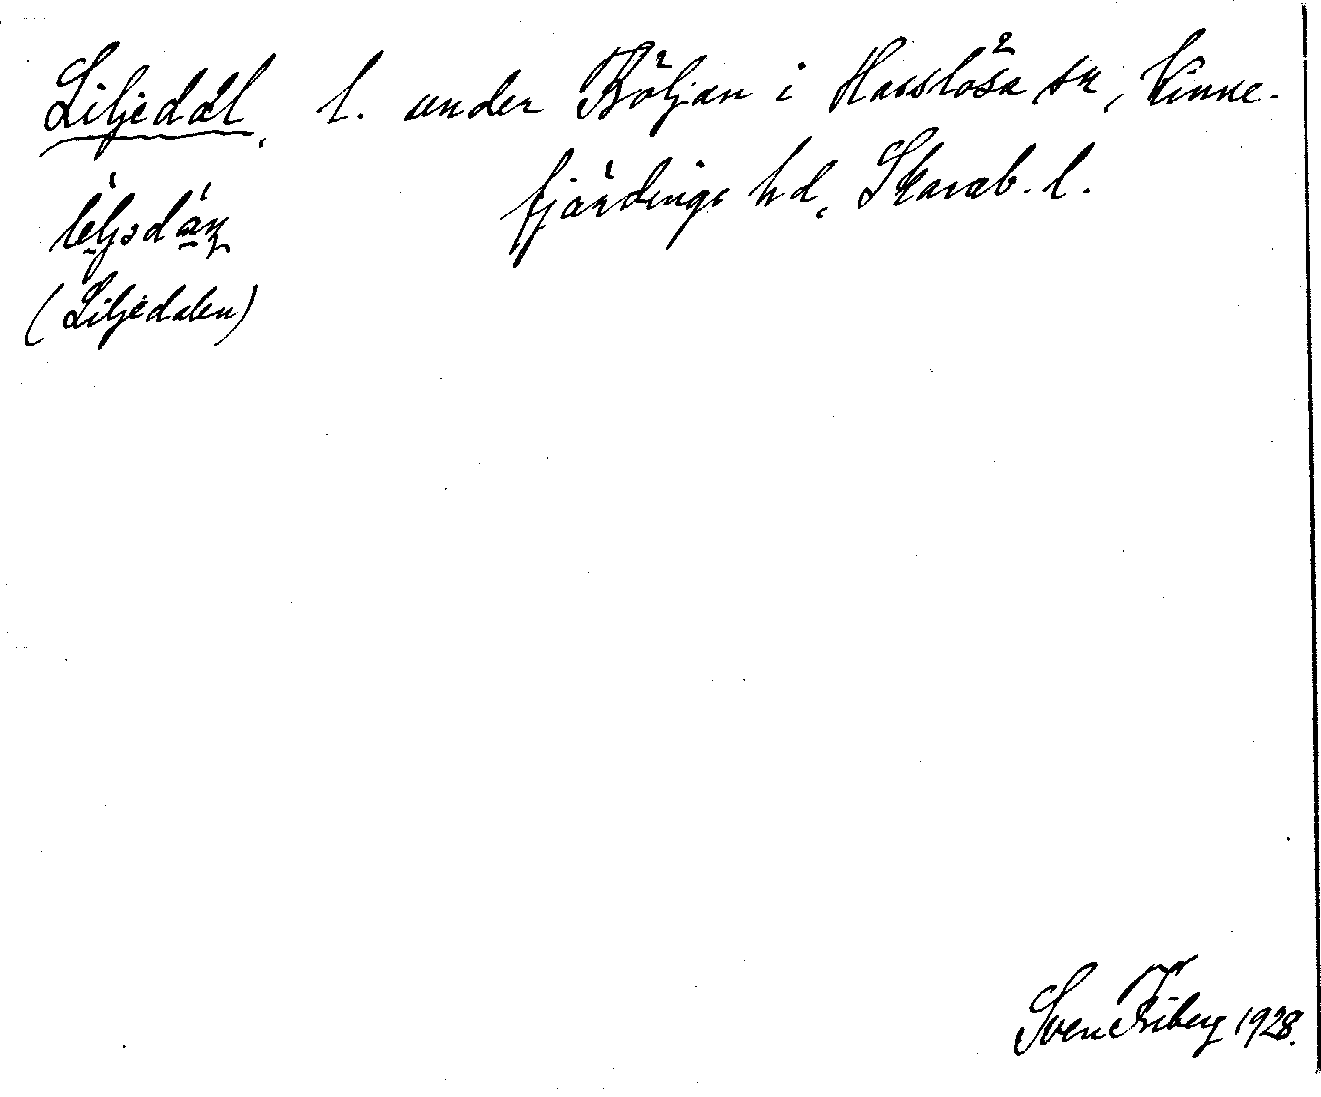 Liljedal, l. under Böljan i Hasslösa sn, Kinne-
fjärdings hd, Skarab. l.
(Liljedalen)
Sven Friberg 1928.